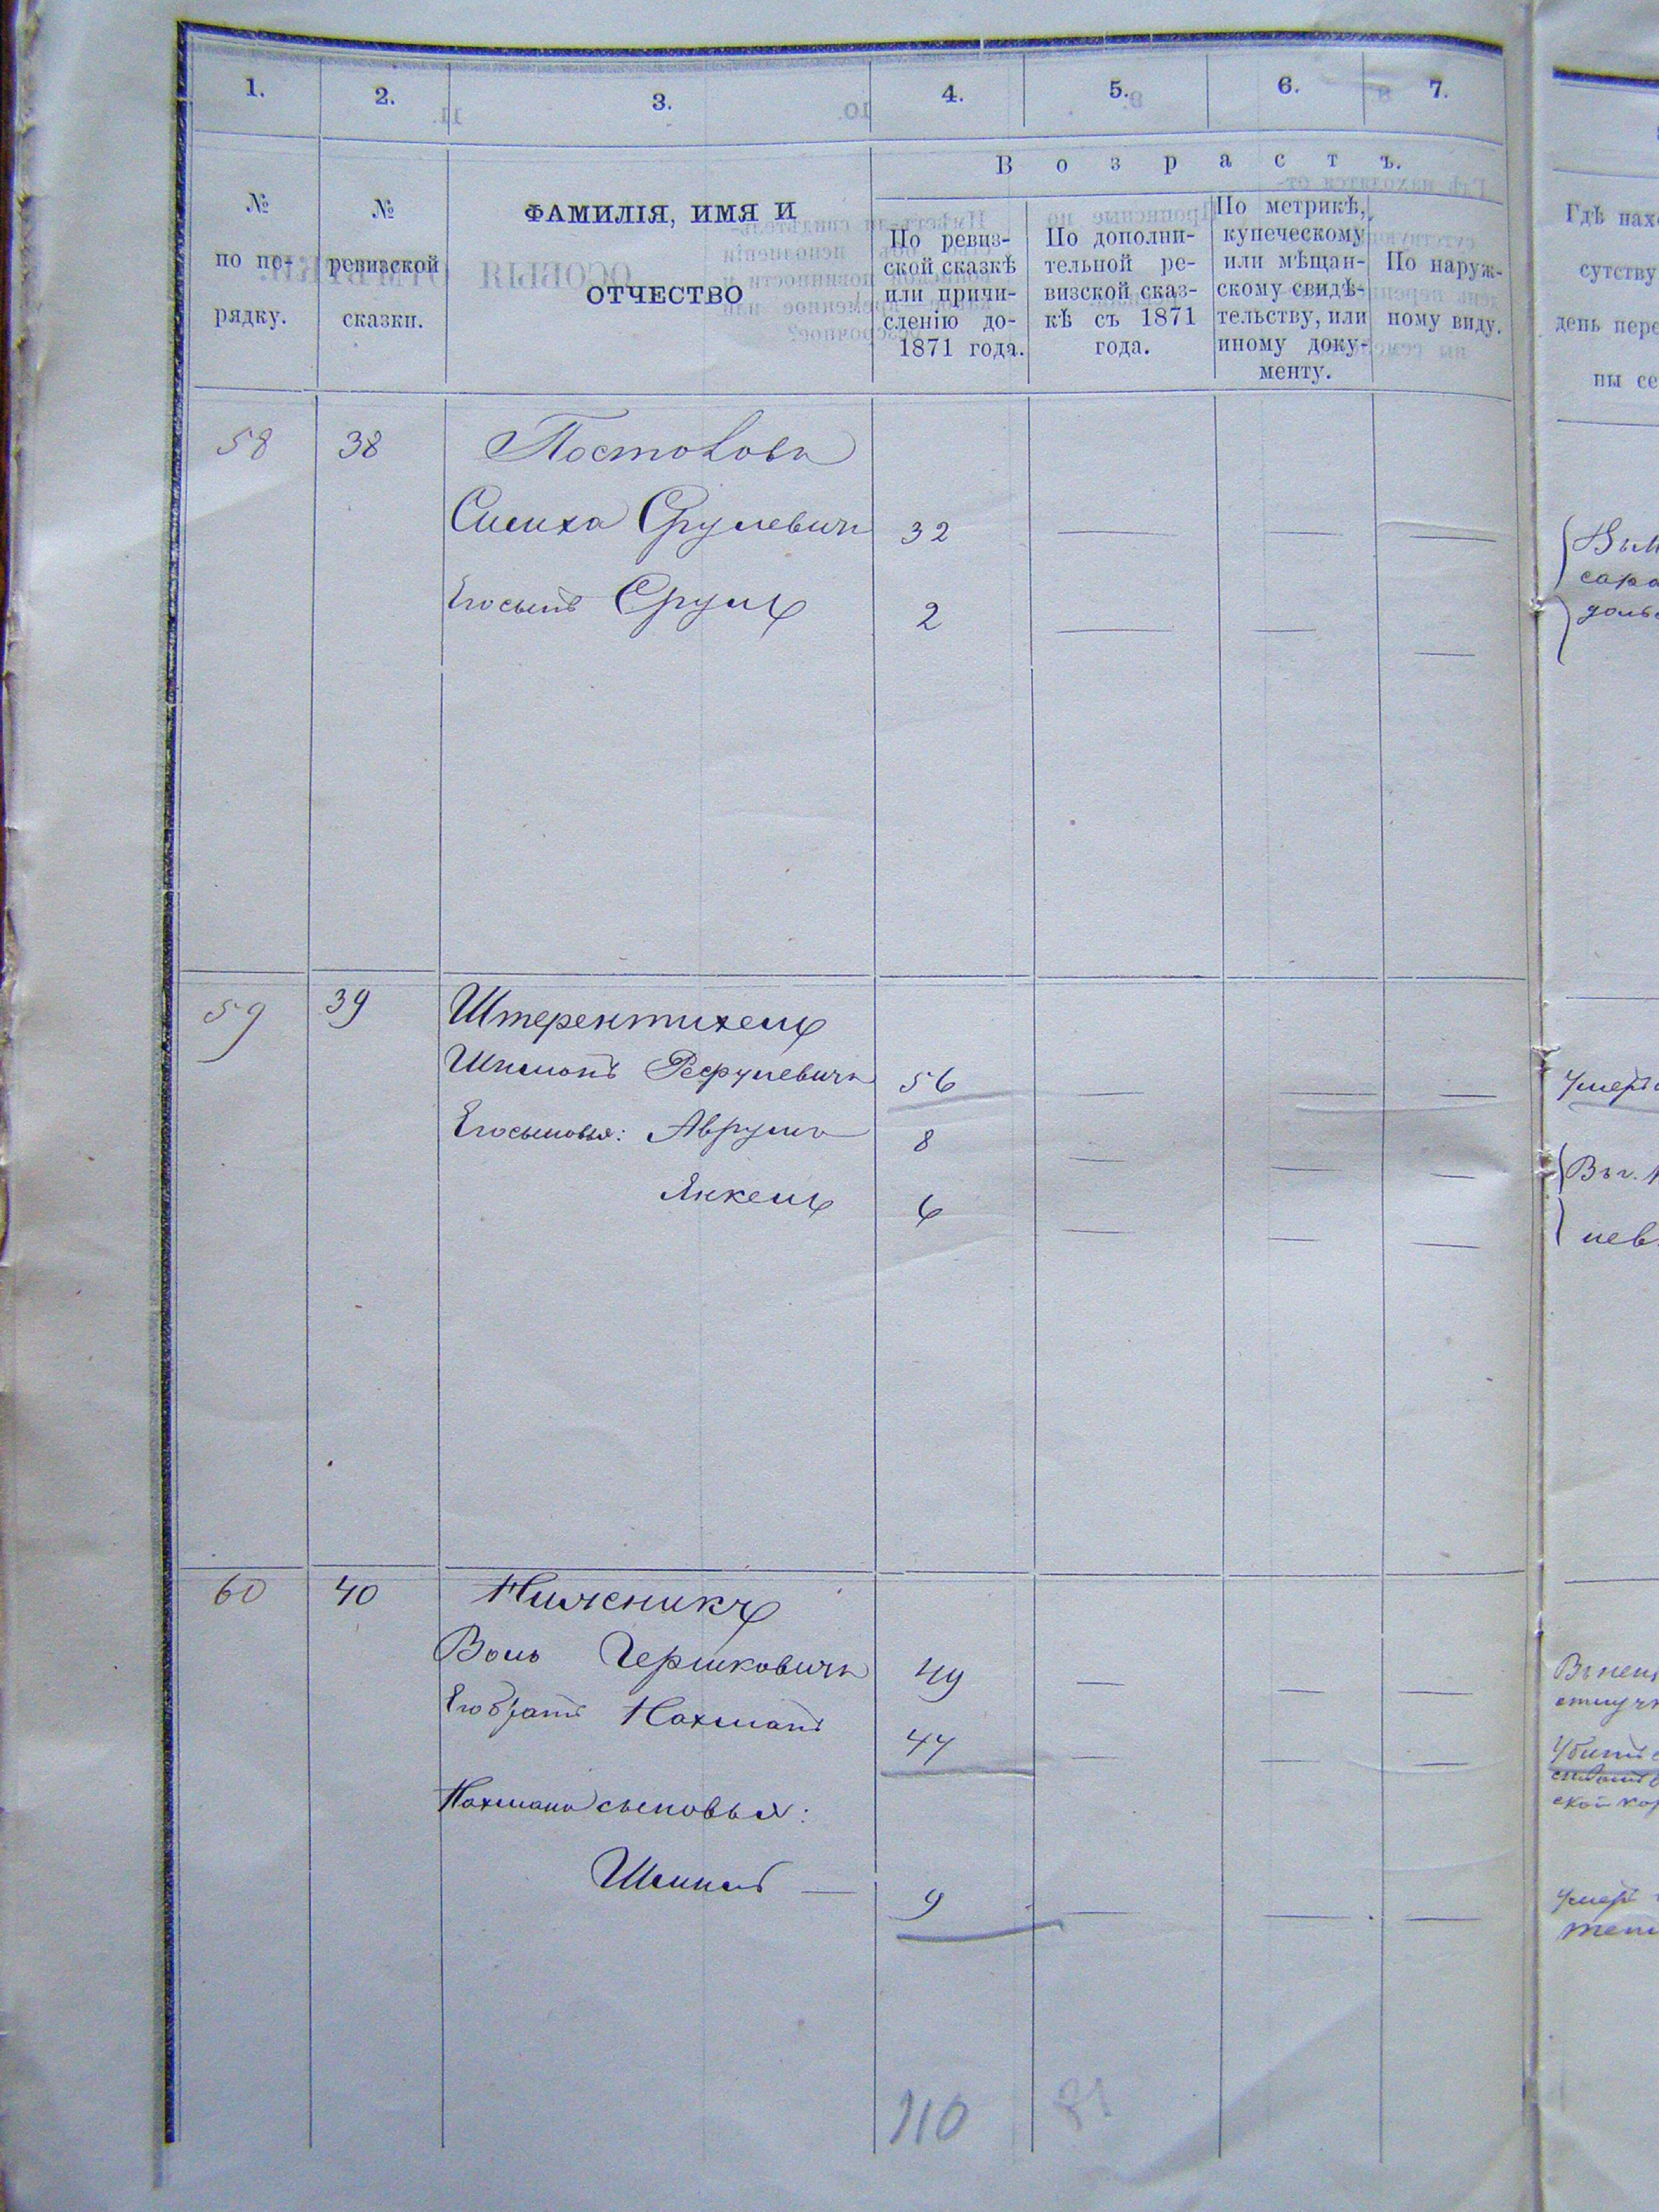 1. 2. 3. 4. 5. 6. 7.
Возрастъ.
№ по по-рядку.
№ ревизской сказки.
ФАМИЛІЯ, ИМЯ И
ОТЧЕСТВО
По ревиз-
ской сказкѣ
или причи-
сленію до-
1871 года.
По дополни-
тельной ре-
визской сказ-
кѣ съ 1871
года.
По метрикѣ,
купеческому
или мѣщан-
скому свидѣ-
тельству, или
иному доку-
менту.
По наруж-
ному виду.
58 38
Симха Срулевичъ 32
Его сынъ Сруль 2
59 39 Штерентихель
56
Его сыновья: Аврумъ 8
Янкель 6
60 40 Ниженикъ
Воль Гершковичъ 49
Его братъ Нахманъ 47
Нахмана сыновья:
9
110
Гдѣ нахо
сутству
день пере
ны се
Умеръ
Въ г.